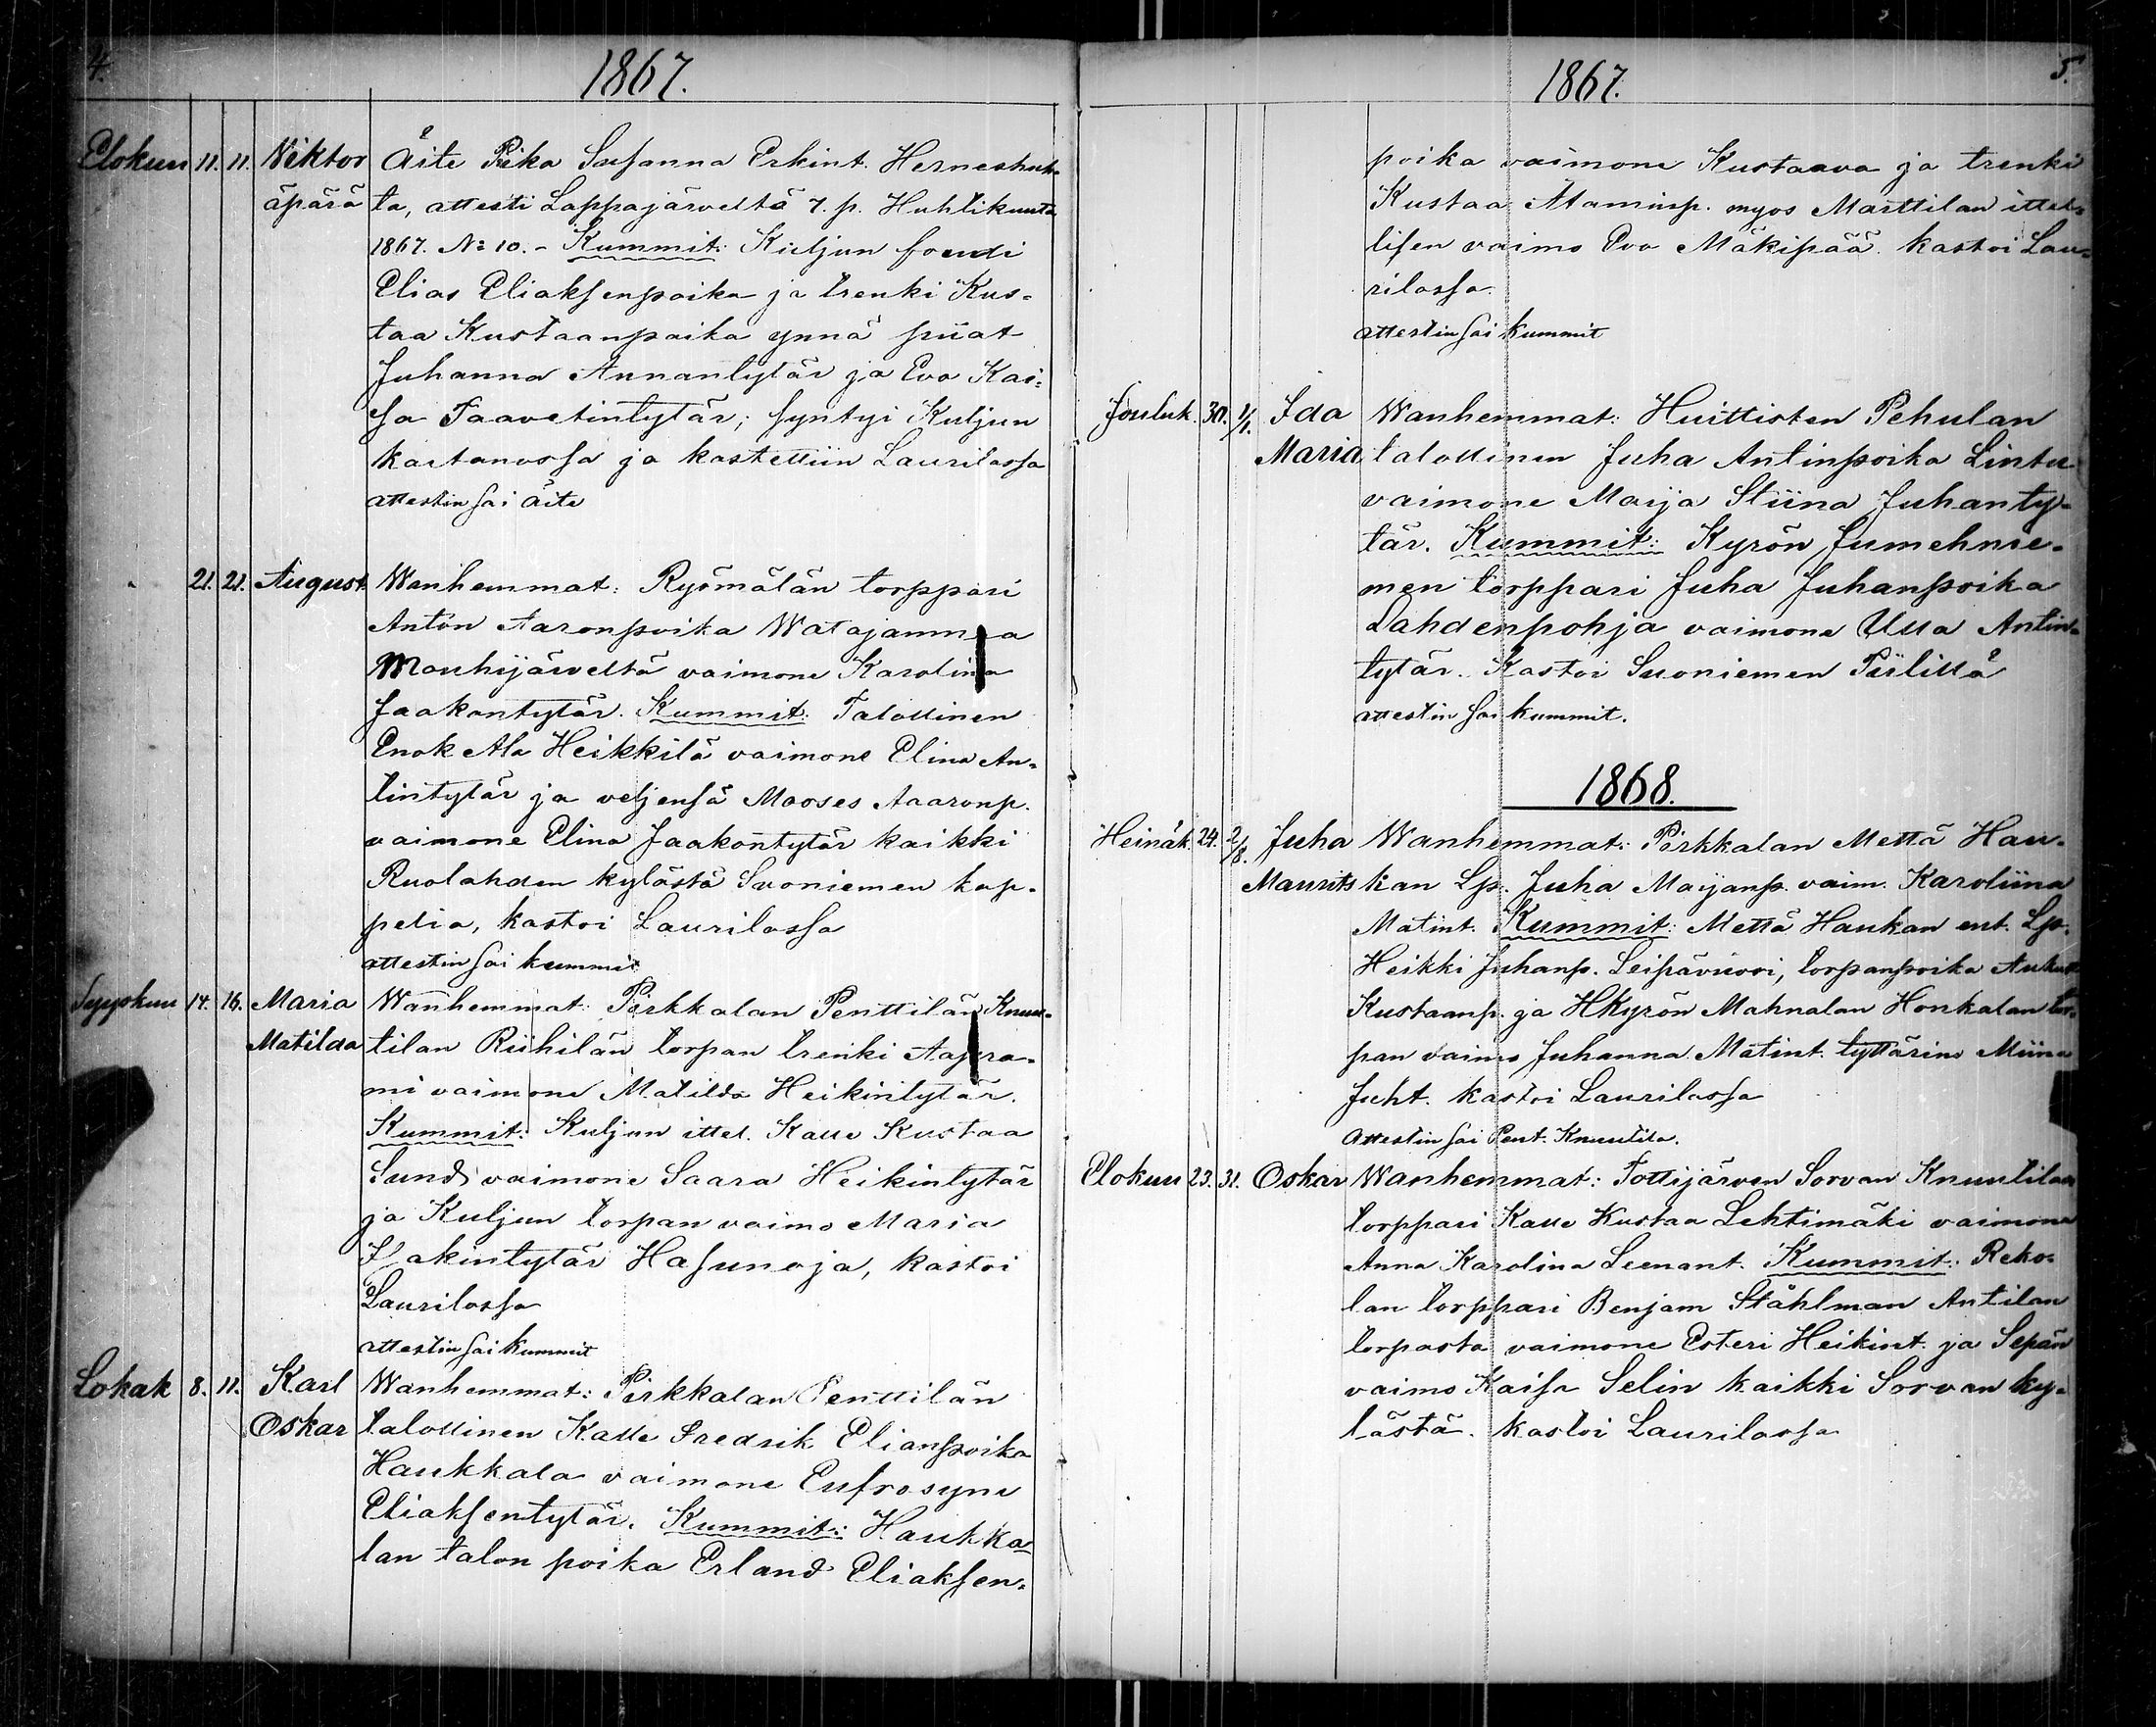 4.
1867.
Elokuu 11. 11. Viktor Äite Piika Susanna Erkint. Herneshuh-
äpärä ta, attesti Lappajärveltä 7. p. Huhtikuuta
1867. No 10. - Kummit: Kuljun foudi
Elias Eliaksenpoika ja trenki Kus-
taa Kustaanpoika ynnä piiat
Juhanna Annantytär ja Eva Kai-
sa Taavetintytär; syntyi Kuljun
kartanossa ja kastettiin Laurilassa
attestin sai äite
21. 21. August. Wanhemmat: Ryömälän torppari
Antön Aaronpoika Watajamaa
Mouhijärveltä vaimone Karolina
Jaakontytär. Kummit: Talollinen
Enok Ala Heikkilä vaimone Elina An-
tintytär ja veljensä Mooses Aaaronp.
vaimone Elina Jaakontytär kaikki
Ruolahden kylästä Suoniemen kap-
pelia, kastoi Laurilassa
attestin sai kummit
Syyskuu 14. 16. Maria Wanhemmat: Pirkkalan Penttilän Knuu-
Matilda tilan Riihilän torpan trenki Aapra-
mi vaimone Matilda Heikintytär.
Kummit: Kuljun ittel. Kalle Kustaa
Sund vaimone Saara Heikintytär
ja Kuljun torpan vaimo Maria
Isakintytär Hasunoja, kastoi
Laurilassa
attestin sai kummit
Lokak 8. 11. Karl Wanhemmat: Pirkkalan Penttilän
Oskar talollinen Kalle Fredrik Elianpoika
Haukkala vaimone Eufrosyne
Eliaksentytär. Kummit: Haukka-
lan talon poika Erland Eliaksen-
5.
1867.
poika vaimone Kustaava ja trenki
Kustaa Ataminp. myos Marttilan ittel-
lisen vaimo Eva Mäkipää. kastoi Lau-
rilassa.
attestin sai kummit
Jouluk. 30. 1/1. Ida Wanhemmat: Huittisten Pehulan
Maria talollinen Juha Antinpoika Lintu
vaimone Maija Stiina Juhanty-
tär. Kummit: Kyrön Jumehnie-
men torppari Juha Juhanpoika
Lahdenpohja vaimone Ulla Antin-
tytär. Kastoi Suoniemen Piilillä
attestin sai kummit.
1868.
Heinäk. 24. 2/8. Juha Wanhemmat: Pirkkalan Mettä Hau-
Maurits kan Lp. Juha Maijanp. vaim. Karoliina
Matint. Kummit: Mettä Haukan ent. Lp.
Heikki Juhanp. Leipävuori, torpanpoika
Kustaanp. ja HKyrön Mahnalan Honkalan tor-
pan vaimo Juhanna Matint. tyttärine Miina
Juht. kastoi Laurilassa
Attestin sai Pent. Knuutila.
Elokuu 23. 31. Oskar Wanhemmat: Tottijärven Sorvan Knuutilan
torppari Kalle Kustaa Lehtimäki vaimone
Anna Karolina Leenant. Kummit: Reko-
lan torppari Benjam Ståhlman Antilan
torpasta vaimone Esteri Heikint. ja Sepän
vaimo Kaisa Selin kaikki Sorvan ky-
lästä. kastoi Laurilassa